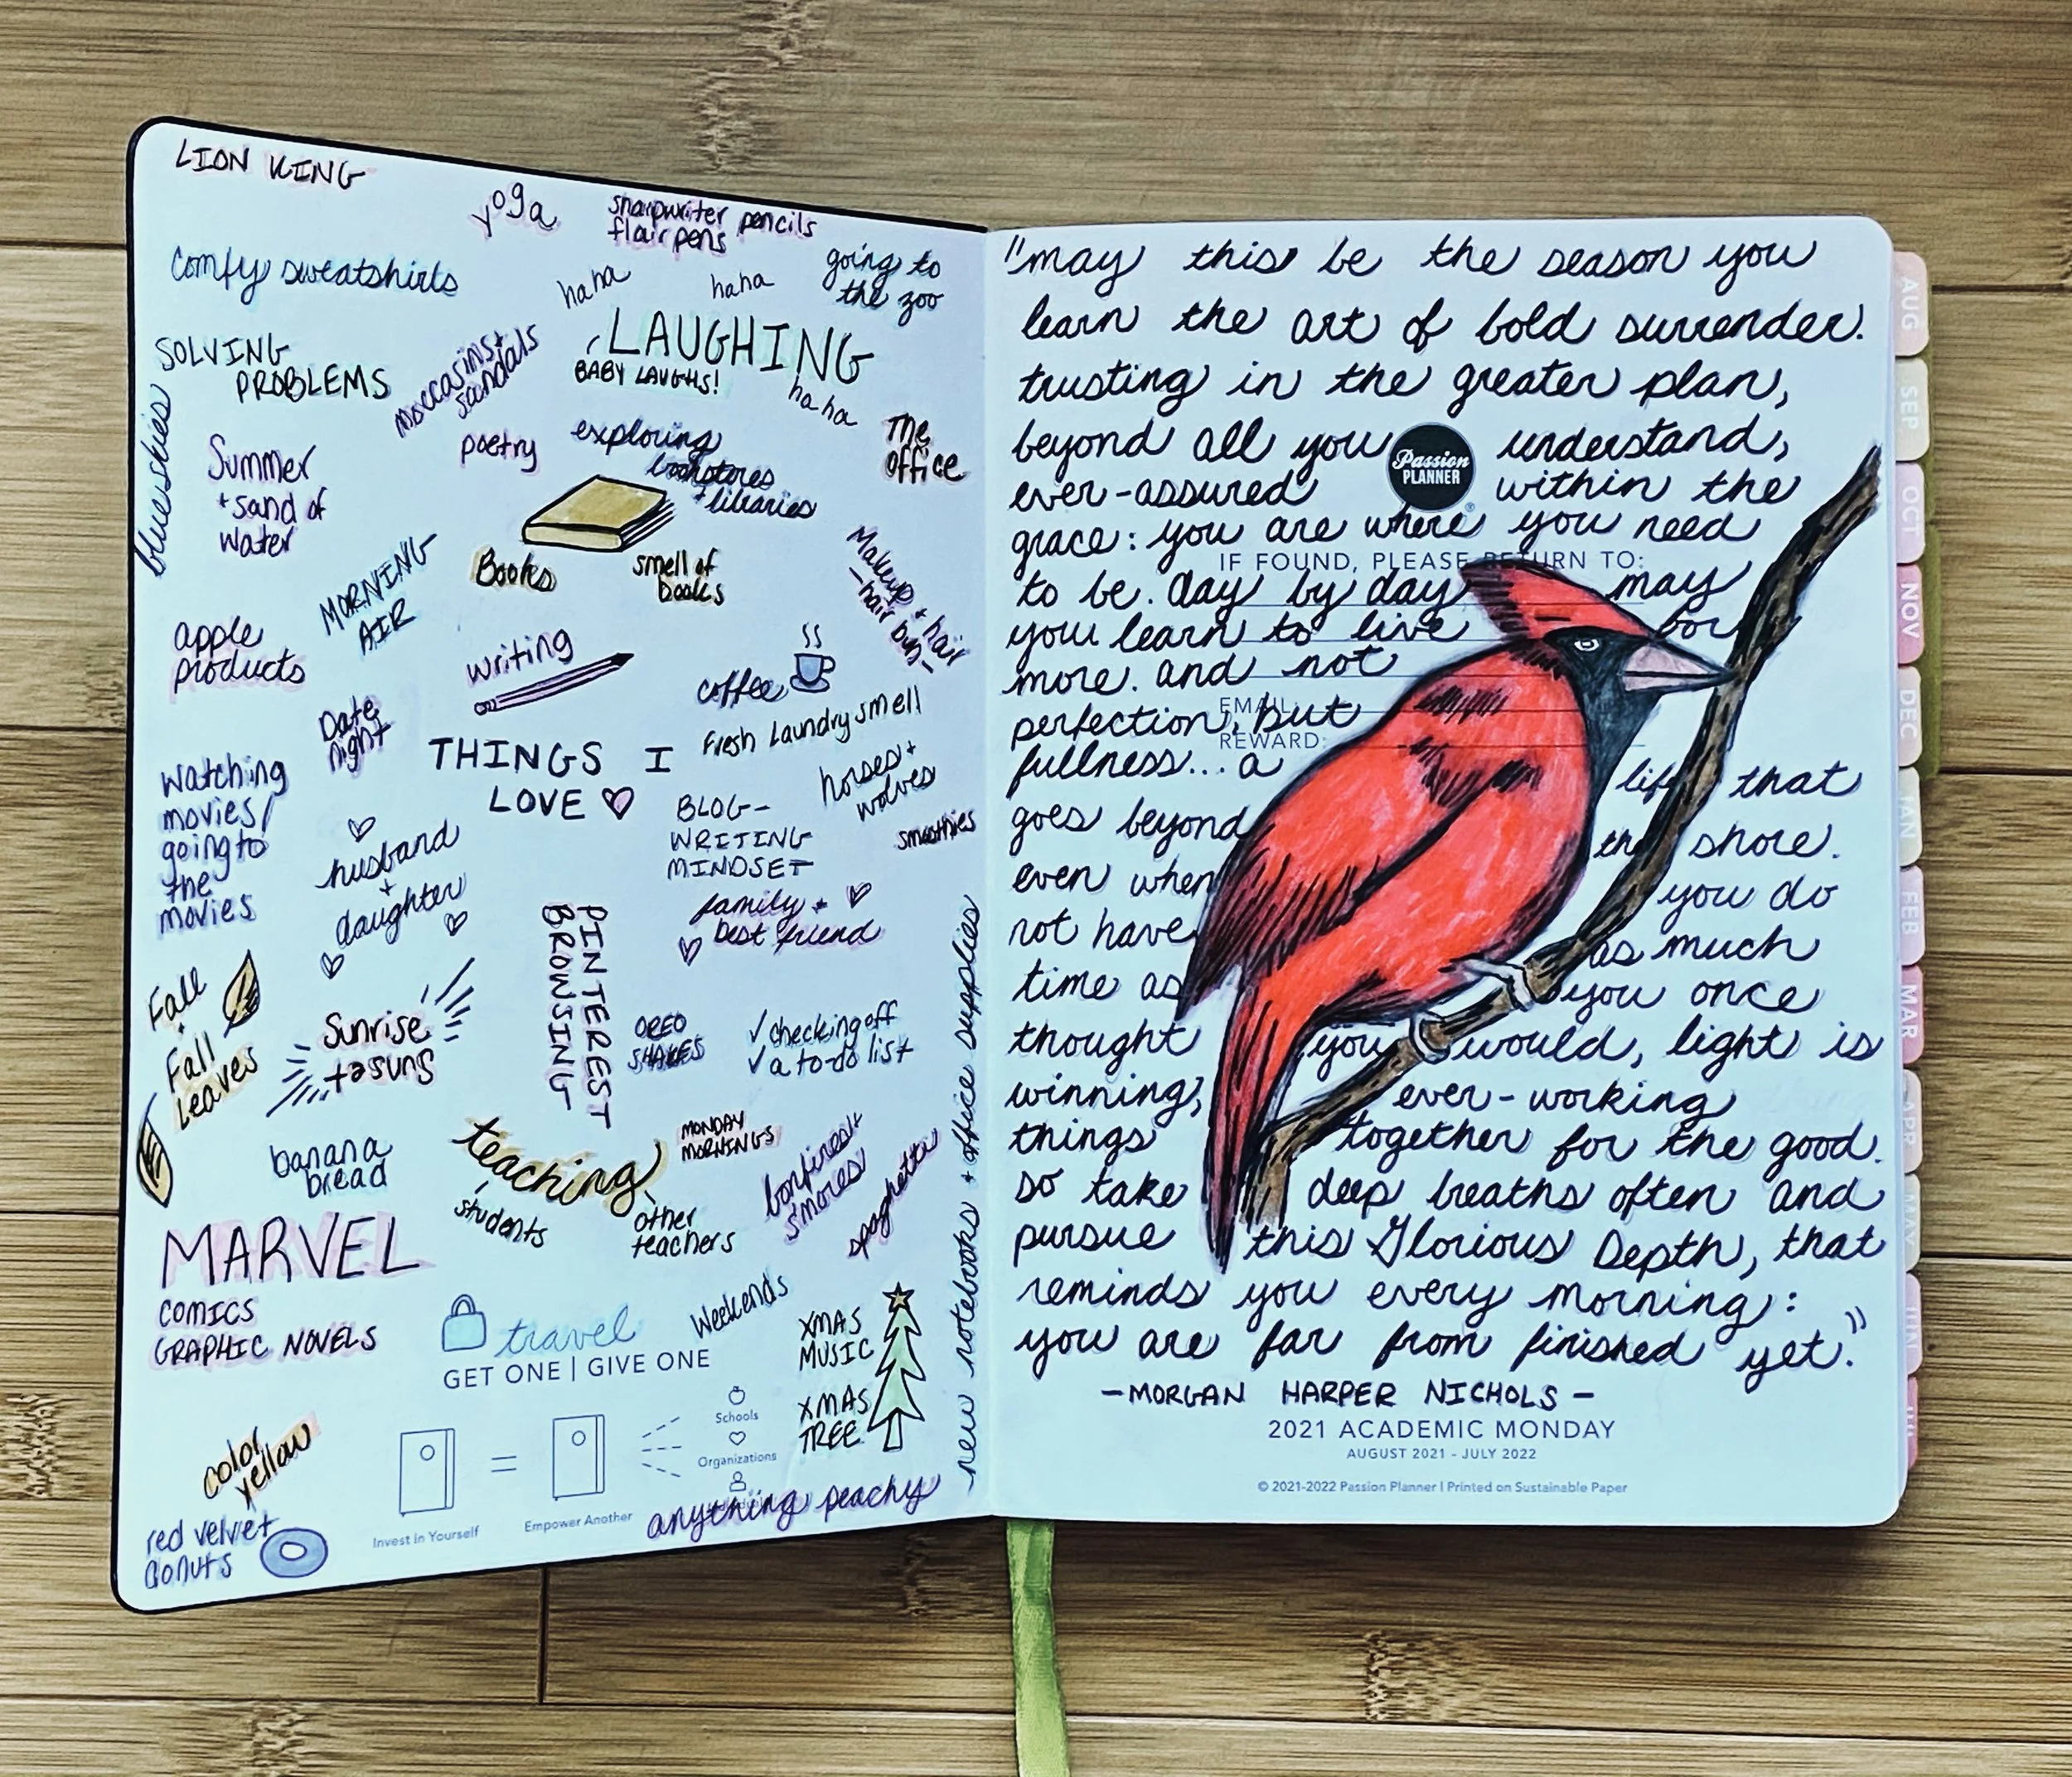 LION KING
yoga
sharpwriter pencils
flair pens
comfy sweatshirts
haha
haha
going to
the zoo
SOLVING
PROBLEMS
moccasins +
sandals
LAUGHING
BABY LAUGHS!
haha
blue skies
Summer
+ sand of
water
poetry
exploring
bookstores
+ libraries
The
office
MORNING
AIR
Books
smell of
books
Makeup + hair
- hair buns -
apple
products
writing
coffee
Date
night
Fresh laundry smell
THINGS I
LOVE
horses +
wolves
watching
movies/
going to
the
movies
BLOG-
WRITING
MINDSET
smoothies
husband
+
daughter
family +
best friend
PINTEREST
BROWSING
Fall
+
Fall
Leaves
Sunrise
+ suns et
OREO
SHAKES
✓ checking off
✓ a to-do list
new notebooks + office supplies
banana
bread
teaching
students
other
teachers
MONDAY
MORNINGS
bonfires +
s'mores
spaghetti
MARVEL
COMICS
GRAPHIC NOVELS
travel
Weekends
XMAS
MUSIC
XMAS
TREE
GET ONE | GIVE ONE
Schools
Organizations
color
yellow
Invest in Yourself
=
Empower Another
anything peachy
red velvet
donuts
"may this be the season you
learn the art of bold surrender.
trusting in the greater plan,
beyond all you understand,
Passion
PLANNER
ever-assured within the
grace: you are where you need
IF FOUND, PLEASE RETURN TO:
to be. day by day may
you learn to live for
more. and not
EMAIL:
perfection, but
REWARD:
fullness... a life that
goes beyond the shore.
even when you do
not have as much
time as you once
thought you would, light is
winning, ever-working
things together for the good.
so take deep breaths often and
pursue this Glorious Depth, that
reminds you every morning:
you are far from finished yet."
-MORGAN HARPER NICHOLS-
2021 ACADEMIC MONDAY
AUGUST 2021 - JULY 2022
© 2021-2022 Passion Planner | Printed on Sustainable Paper
AUG
SEP
OCT
NOV
DEC
JAN
FEB
MAR
APR
MAY
JUN